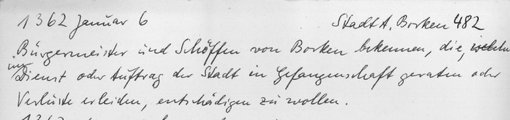 1362 Januar 6 StadtA. Borken 482
Bürgermeister und Schöffen von Borken bekennen, die, welche
im Dienst oder Auftrag der Stadt in Gefangenschaft geraten oder
Verluste erleiden, entschädigen zu wollen.